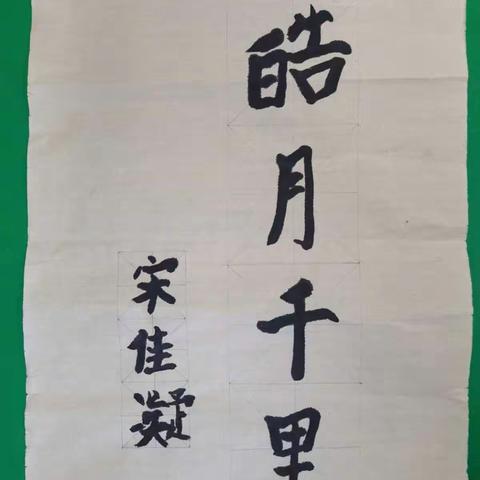 皓月千里
宋佳凝